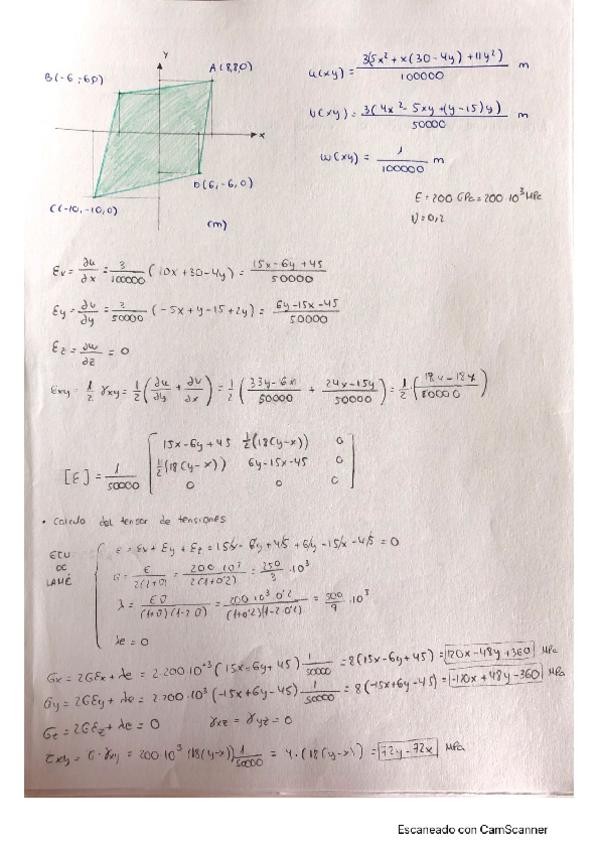 Y
A(8,8,0)
B(-6,6,0)
x
D(6,-6,0)
C(-10,-10,0)
(m)
u(xy) = 3(5x² + x(30-4y) + 11y²) / 100000 m
v(xy) = 3(4x² - 5xy + (y-15)y) / 50000 m
w(xy) = 1 / 100000 m
E = 200 GPa = 200·10³ MPa
ν = 0,2
Ex = ∂u/∂x = 3/100000 (10x + 30 - 4y) = 15x - 6y + 45 / 50000
Ey = ∂v/∂y = 3/50000 (-5x + y - 15 + 2y) = 6y - 15x - 45 / 50000
Ez = ∂w/∂z = 0
Exy = 1/2 γxy = 1/2 (∂u/∂y + ∂v/∂x) = 1/2 (33y - 6x / 50000 + 24x - 15y / 50000) = 1/2 · (18y - 18x / 50000)
[E] = 1/50000 [ 15x - 6y + 45 1/2(18(y-x)) 0
1/2(18(y-x)) 6y - 15x - 45 0
0 0 0 ]
• Calculo del tensor de tensiones
ECU DE LAMÉ
e = Ex + Ey + Ez = 15x - 6y + 45 + 6y - 15x - 45 = 0
G = E / 2(1+ν) = 200·10³ / 2(1+0'2) = 250/3 · 10³
λ = Eν / (1+ν)(1-2ν) = 200·10³ 0'2 / (1+0'2)(1-2·0'2) = 500/9 · 10³
λe = 0
σx = 2GEx + λe = 2·200·10³ (15x - 6y + 45) 1/50000 = 8(15x - 6y + 45) = 120x - 48y + 360 MPa
σy = 2GEy + λe = 2·200·10³ (-15x + 6y - 45) 1/50000 = 8(-15x + 6y - 45) = -120x + 48y - 360 MPa
σz = 2GEz + λe = 0 γxz = γyz = 0
τxy = G·γxy = 200·10³ (18(y-x)) 1/50000 = 4·(18(y-x)) = 72y - 72x MPa
Escaneado con CamScanner